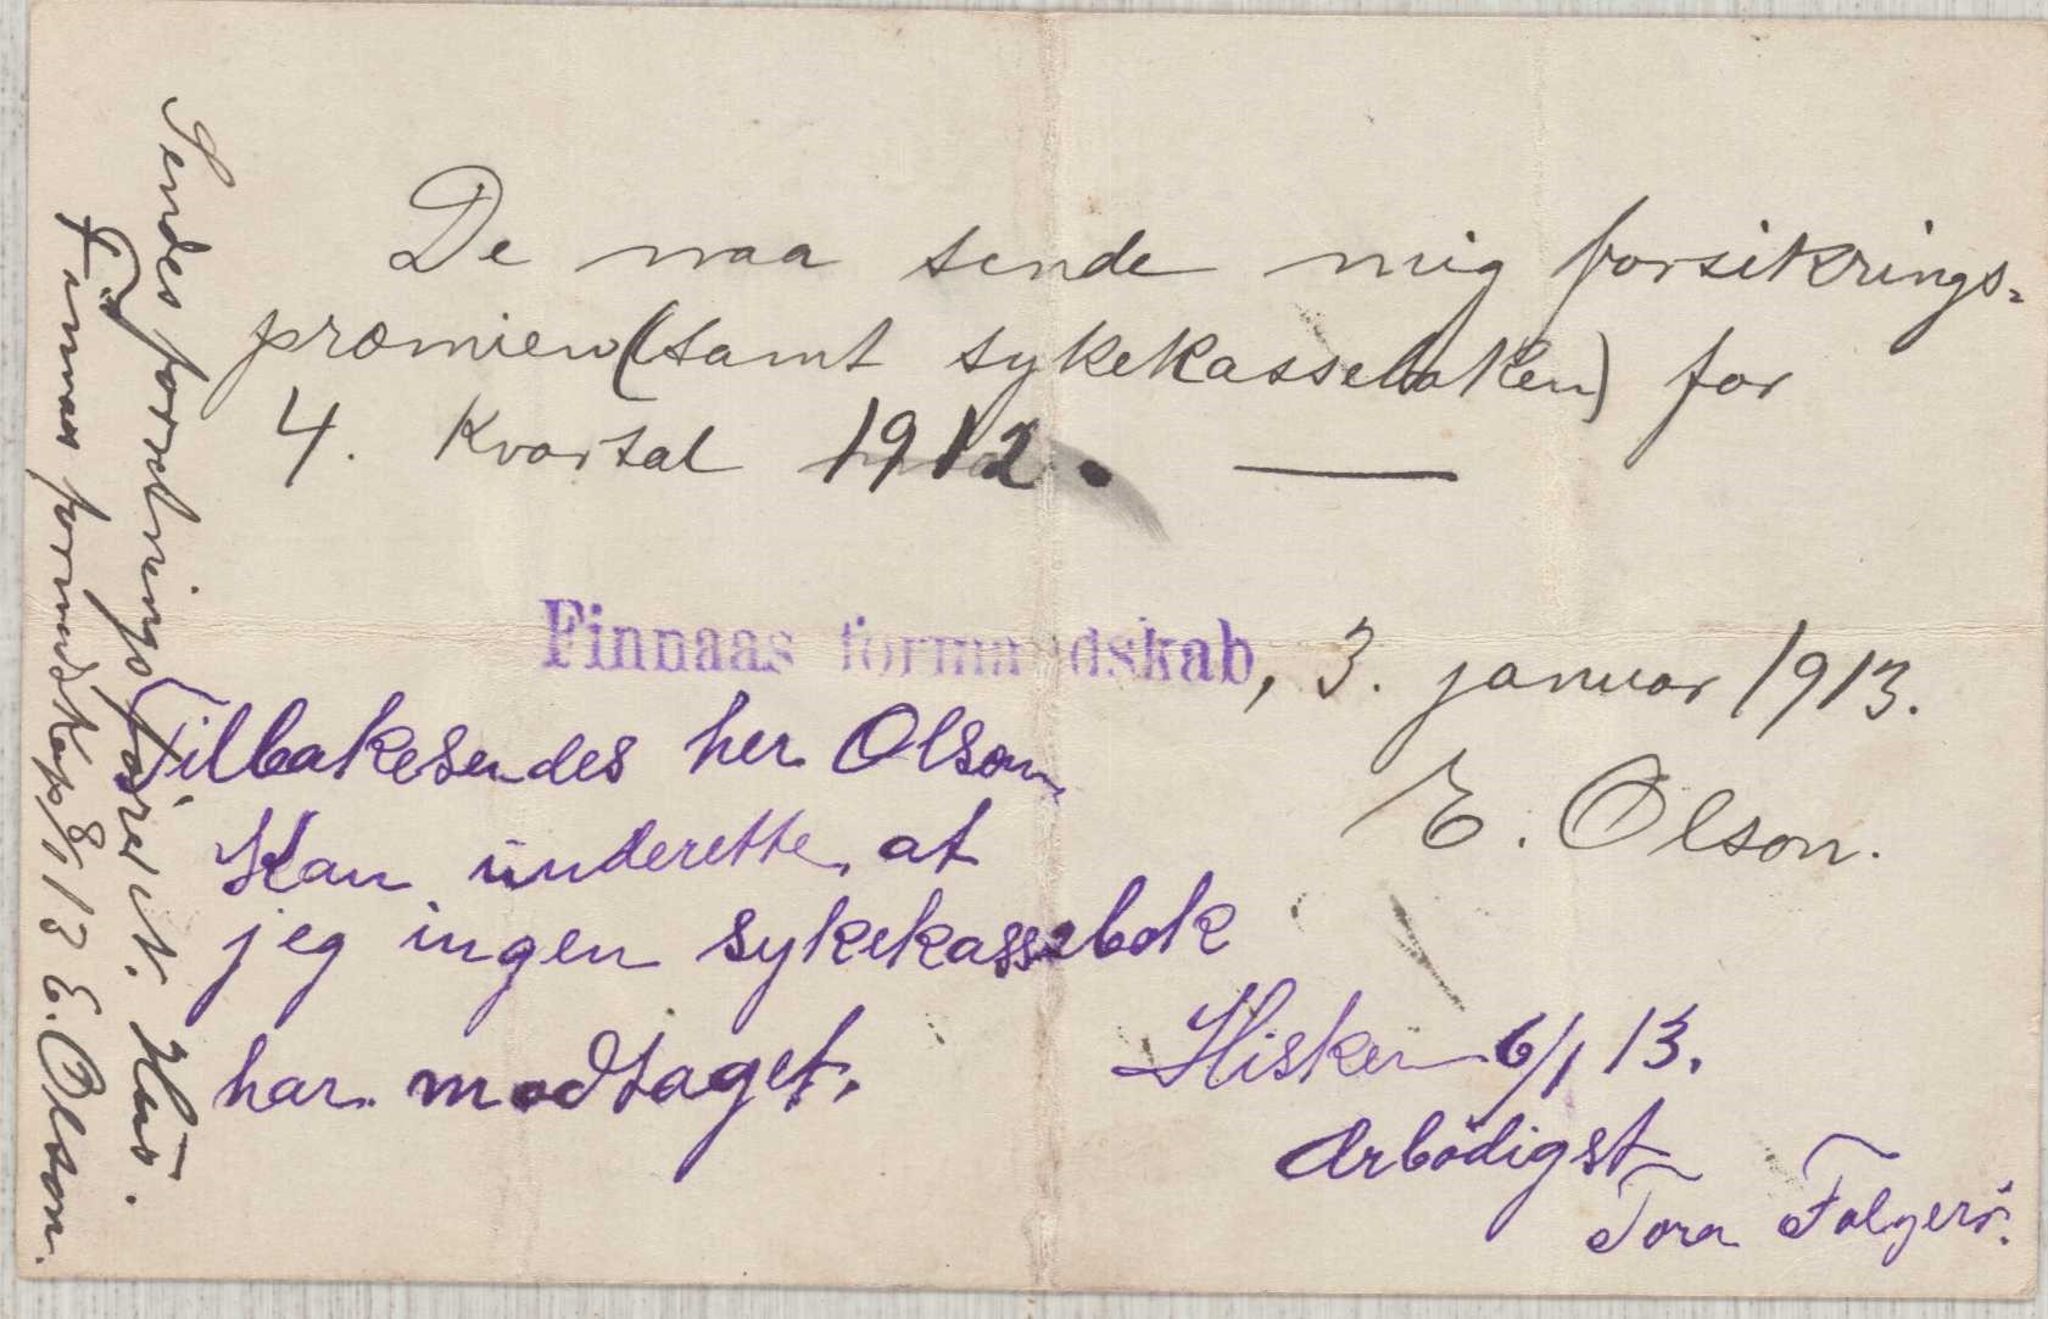 De maa sende mig forsikrings-
præmien (samt sykekasseboken) for
4. Kvartal 1912. —
Finnaas formandskab, 3. januar 1913.
E. Olson.
Tilbakesendes her Olson.
Kan underette, at
jeg ingen sykekassebok
har modtaget.
Hisken 6/1 13.
Ærbödigst
Tora Folgerö.
Sendes forretningsförer N. Hus.
Finnaas formandskap 8/1 13 E. Olson.